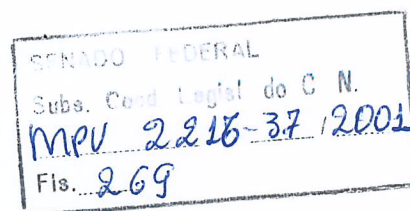 SENADO FEDERAL
Subs. Coord Legisl do C N.
MPV 2216-37 /2001
Fls. 269